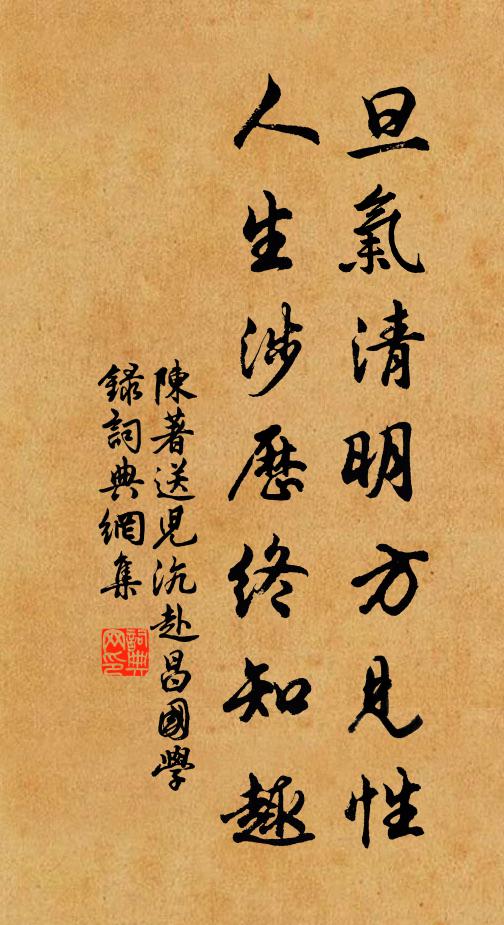 旦氣清明方見性
人生涉歷終知趣
陳著送兒沆赴昌國學
錄詞典網集
詞典網印